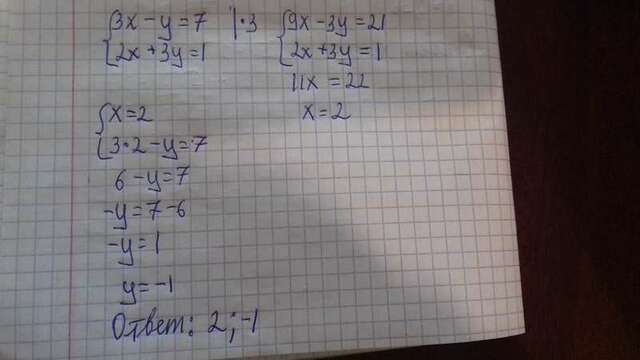 {3x - y = 7 | ·3 {9x - 3y = 21
{2x + 3y = 1 {2x + 3y = 1
11x = 22
x = 2
{x = 2
{3·2 - y = 7
6 - y = 7
-y = 7 - 6
-y = 1
y = -1
Ответ: 2; -1